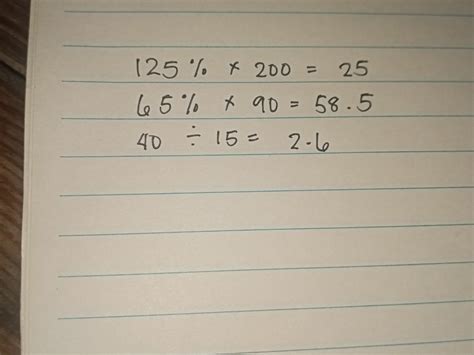 125% × 200 = 25
65% × 90 = 58.5
40 ÷ 15 = 2.6